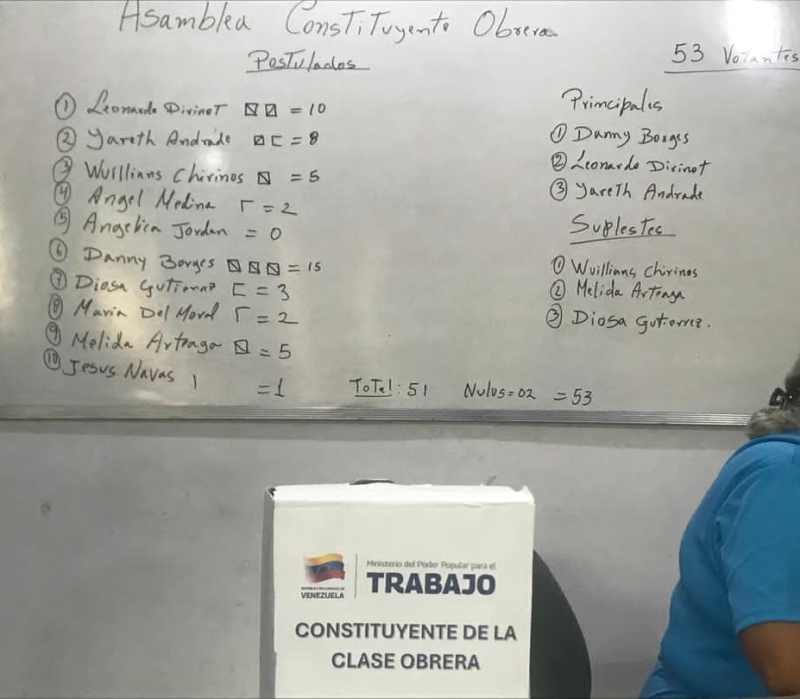 Asamblea Constituyente Obrera
53 Votantes
Postulados
① Leonardo Dirinot = 10
② Yareth Andrade = 8
③ Wuillians Chirinos = 5
④ Angel Medina = 2
⑤ Angelica Jordan = 0
⑥ Danny Borges = 15
⑦ Diosa Gutierrez = 3
⑧ Maria Del Moral = 2
⑨ Melida Arteaga = 5
⑩ Jesus Navas = 1
Total: 51 Nulos = 02 = 53
Principales
① Danny Borges
② Leonardo Dirinot
③ Yareth Andrade
Suplestes
① Wuillians Chirinos
② Melida Arteaga
③ Diosa Gutierrez.
REPÚBLICA BOLIVARIANA DE
VENEZUELA
Ministerio del Poder Popular para el
TRABAJO
CONSTITUYENTE DE LA
CLASE OBRERA